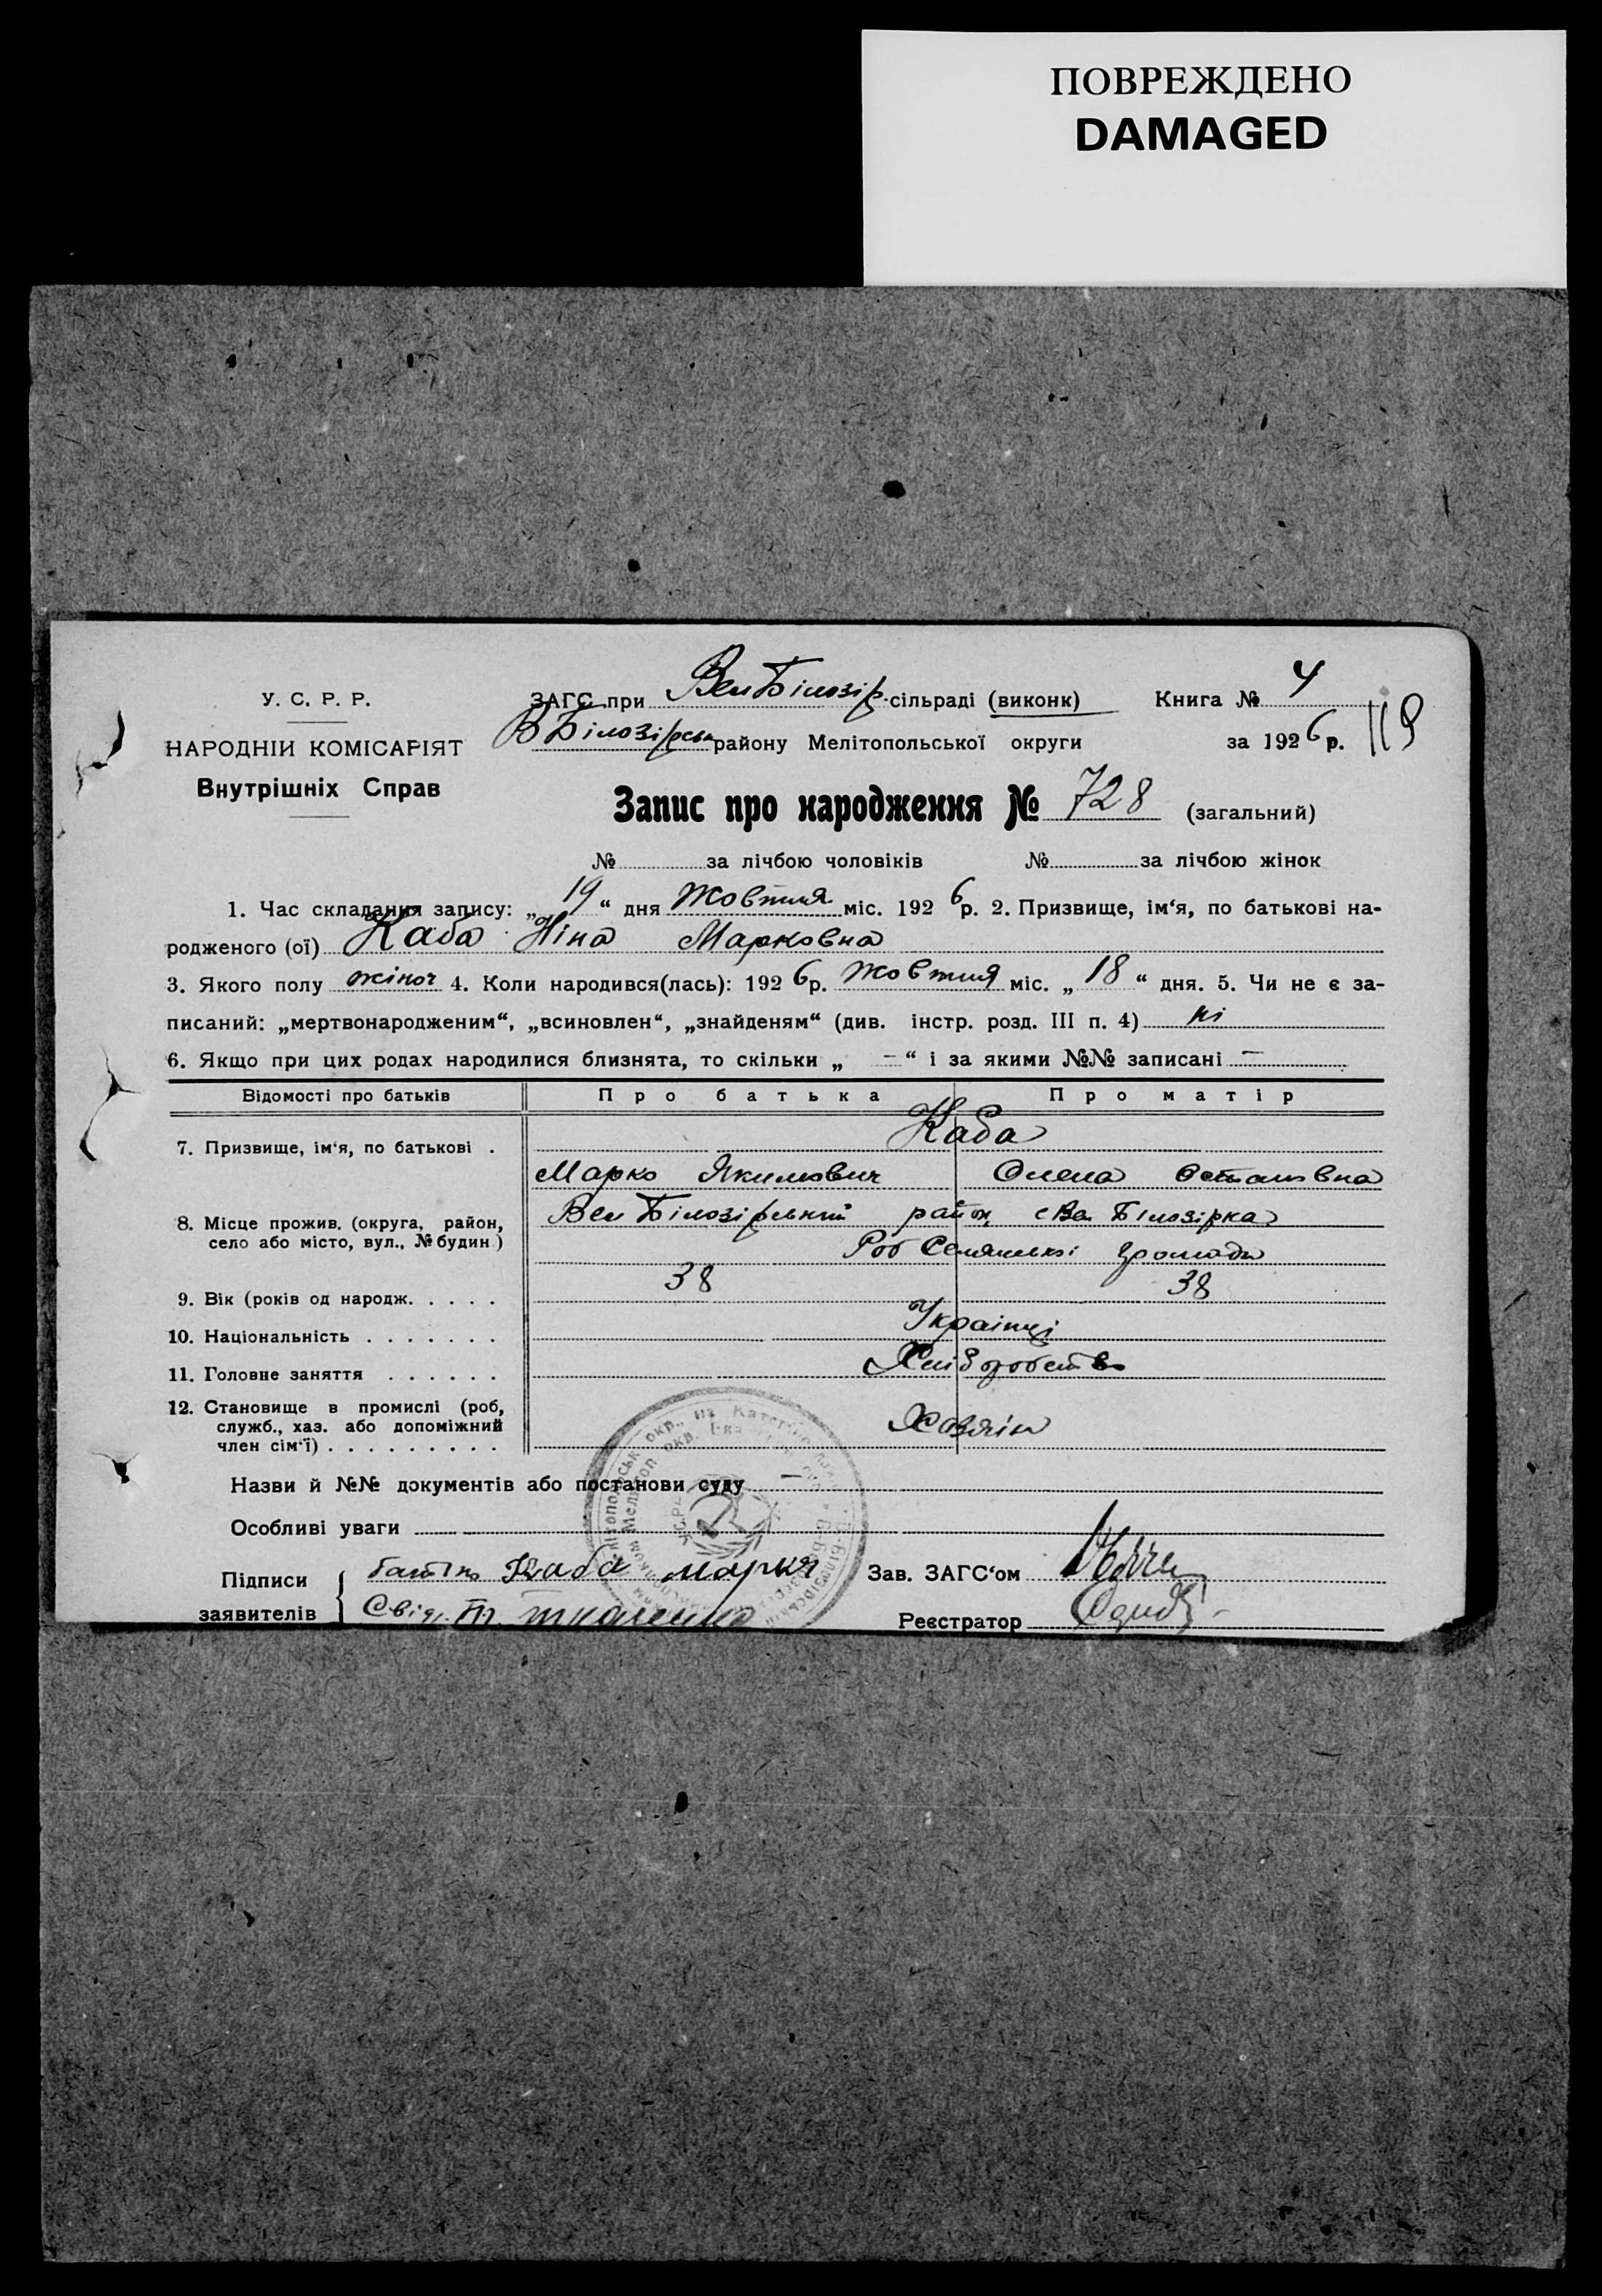 ПОВРЕЖДЕНО
DAMAGED
У. С. Р. Р.
НАРОДНІЙ КОМІСАРІЯТ
Внутрішніх Справ
ЗАГС при ВелБілозір. сільраді (виконк) Книга № 4
ВБілозірськ району Мелітопольської округи за 1926 р. 119
Запис про народження № 728 (загальний)
№ за лічбою чоловіків № за лічбою жінок
1. Час складання запису: „19“ дня Жовтня міс. 1926 р. 2. Призвище, ім‘я, по батькові на-
родженого (ої) Каба Ніна Марковна
3. Якого полу жіноч 4. Коли народився(лась): 1926 р. Жовтня міс. „18“ дня. 5. Чи не є за-
писаний: „мертвонародженим“, „всиновлен“, „знайденям“ (див. інстр. розд. III п. 4) ні
6. Якщо при цих родах народилися близнята, то скільки „ — “ і за якими №№ записані —
Відомості про батьків Про батька Про матір
7. Призвище, ім‘я, по батькові . Каба
Марко Якимович Олена Остаповна
8. Місце прожив. (округа, район, село або місто, вул., № будин.) Вел Білозірський район с Вел Білозірка
Роб Селянської громади
9. Вік (років од народж. . . . . 38 38
10. Національність . . . . . . . Українці
11. Головне заняття . . . . . . Хліборобство
12. Становище в промислі (роб, служб., хаз. або допоміжний член сім‘ї) . . . . . . . . . Хазяїн
Назви й №№ документів або постанови суду —
Особливі уваги
Підписи заявителів
батько Каба Марко
Свід. Ткаченко
Зав. ЗАГС‘ом
Реєстратор